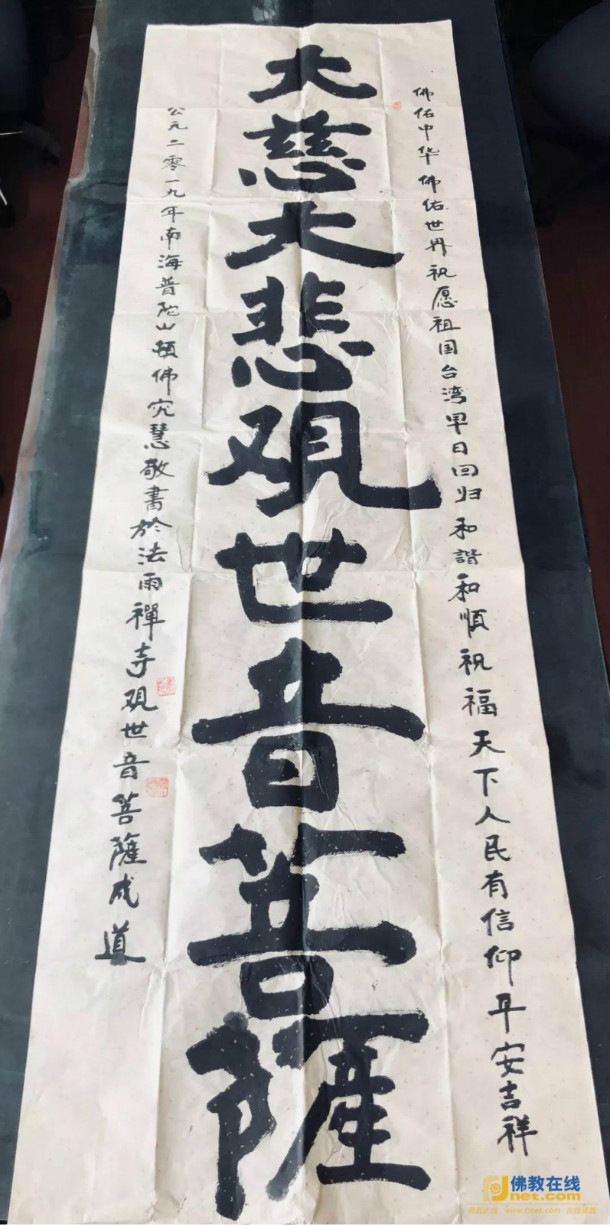 佛佑中华佛佑世界祝愿祖国台湾早日回归和諧和順祝福天下人民有信仰平安吉祥
大慈大悲覌世音菩薩
公元二零一九年南海普陀山佛慧敬書於法雨禪寺覌世音菩薩成道
佛教在线
Fjnet.com